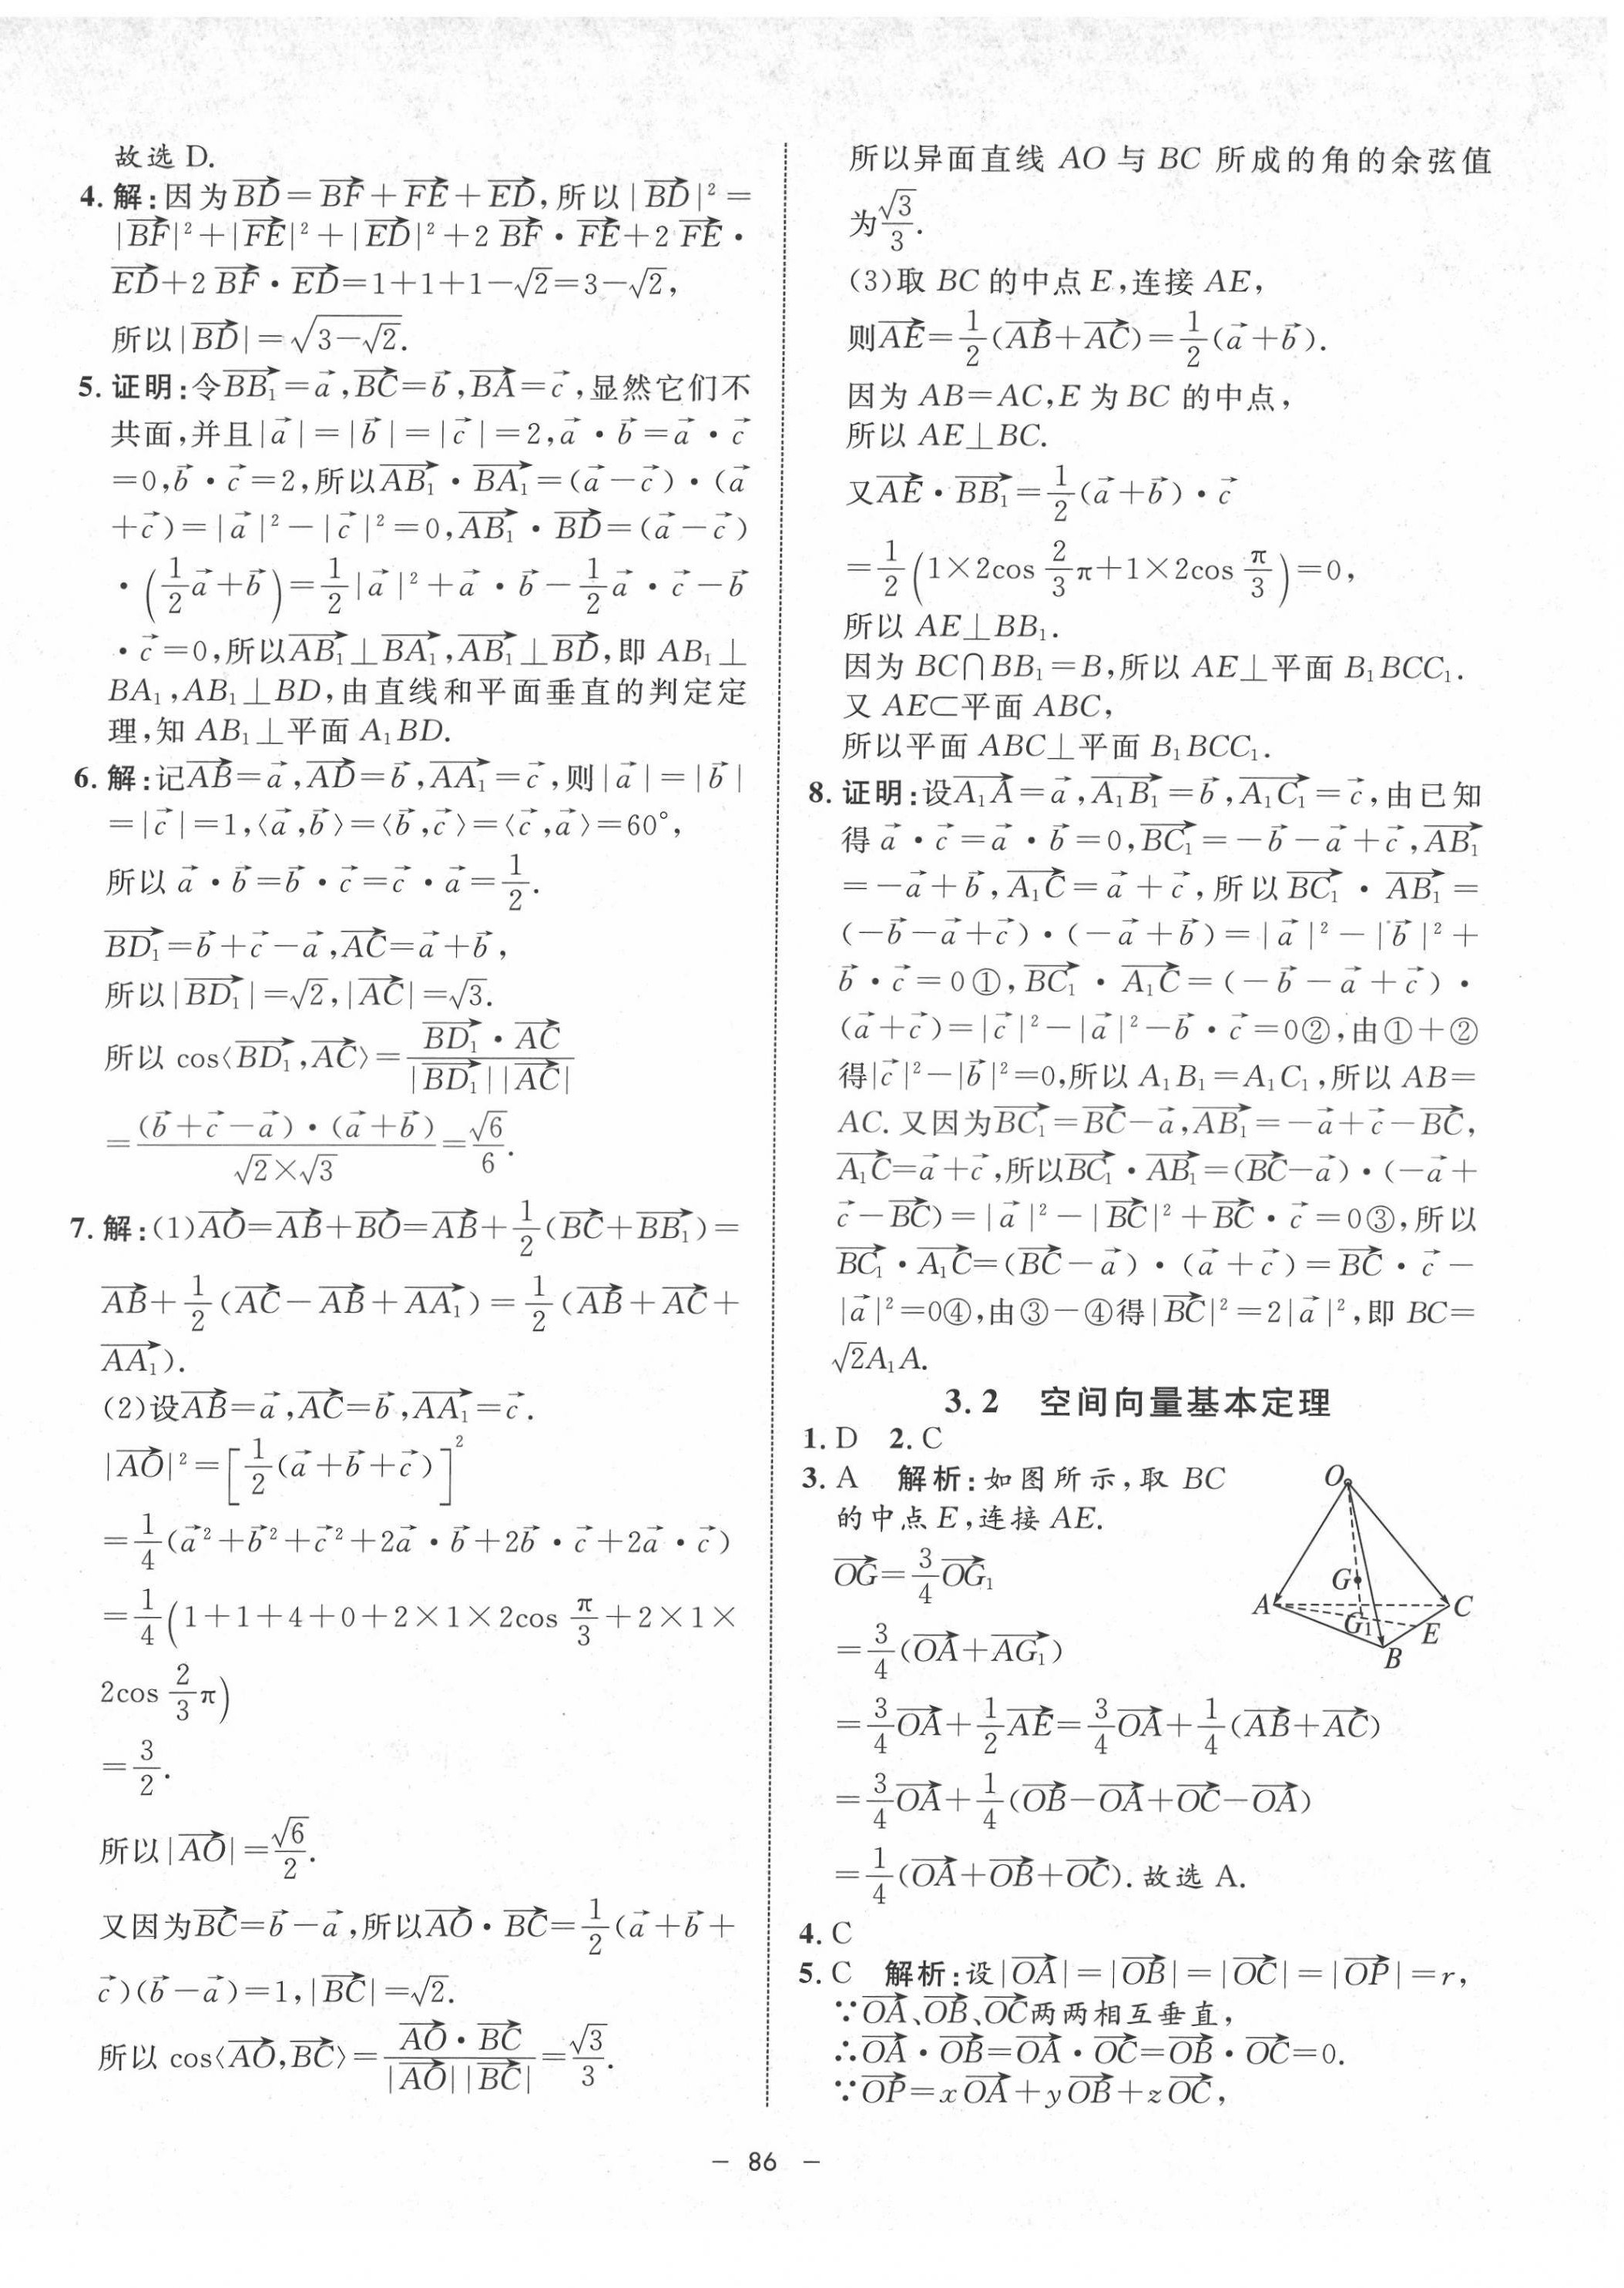 故选 D.
4. 解:因为$\overrightarrow{BD}=\overrightarrow{BF}+\overrightarrow{FE}+\overrightarrow{ED}$,所以$|\overrightarrow{BD}|^2=$
$|\overrightarrow{BF}|^2+|\overrightarrow{FE}|^2+|\overrightarrow{ED}|^2+2\overrightarrow{BF}\cdot\overrightarrow{FE}+2\overrightarrow{FE}\cdot$
$\overrightarrow{ED}+2\overrightarrow{BF}\cdot\overrightarrow{ED}=1+1+1-\sqrt{2}=3-\sqrt{2}$,
所以$|\overrightarrow{BD}|=\sqrt{3-\sqrt{2}}$.
5. 证明:令$\overrightarrow{BB_1}=\vec{a},\overrightarrow{BC}=\vec{b},\overrightarrow{BA}=\vec{c}$,显然它们不
共面,并且$|\vec{a}|=|\vec{b}|=|\vec{c}|=2,\vec{a}\cdot\vec{b}=\vec{a}\cdot\vec{c}$
$=0,\vec{b}\cdot\vec{c}=2$,所以$\overrightarrow{AB_1}\cdot\overrightarrow{BA_1}=(\vec{a}-\vec{c})\cdot(\vec{a}$
$+\vec{c})=|\vec{a}|^2-|\vec{c}|^2=0,\overrightarrow{AB_1}\cdot\overrightarrow{BD}=(\vec{a}-\vec{c})$
$\cdot\left(\frac{1}{2}\vec{a}+\vec{b}\right)=\frac{1}{2}|\vec{a}|^2+\vec{a}\cdot\vec{b}-\frac{1}{2}\vec{a}\cdot\vec{c}-\vec{b}$
$\cdot\vec{c}=0$,所以$\overrightarrow{AB_1}\perp\overrightarrow{BA_1},\overrightarrow{AB_1}\perp\overrightarrow{BD}$,即 $AB_1\perp$
$BA_1,AB_1\perp BD$,由直线和平面垂直的判定定
理,知 $AB_1\perp$平面 $A_1BD$.
6. 解:记$\overrightarrow{AB}=\vec{a},\overrightarrow{AD}=\vec{b},\overrightarrow{AA_1}=\vec{c}$,则$|\vec{a}|=|\vec{b}|$
$=|\vec{c}|=1,\langle\vec{a},\vec{b}\rangle=\langle\vec{b},\vec{c}\rangle=\langle\vec{c},\vec{a}\rangle=60°$,
所以 $\vec{a}\cdot\vec{b}=\vec{b}\cdot\vec{c}=\vec{c}\cdot\vec{a}=\frac{1}{2}$.
$\overrightarrow{BD_1}=\vec{b}+\vec{c}-\vec{a},\overrightarrow{AC}=\vec{a}+\vec{b}$,
所以$|\overrightarrow{BD_1}|=\sqrt{2},|\overrightarrow{AC}|=\sqrt{3}$.
所以 $\cos\langle\overrightarrow{BD_1},\overrightarrow{AC}\rangle=\frac{\overrightarrow{BD_1}\cdot\overrightarrow{AC}}{|\overrightarrow{BD_1}||\overrightarrow{AC}|}$
$=\frac{(\vec{b}+\vec{c}-\vec{a})\cdot(\vec{a}+\vec{b})}{\sqrt{2}\times\sqrt{3}}=\frac{\sqrt{6}}{6}$.
7. 解:(1)$\overrightarrow{AO}=\overrightarrow{AB}+\overrightarrow{BO}=\overrightarrow{AB}+\frac{1}{2}(\overrightarrow{BC}+\overrightarrow{BB_1})=$
$\overrightarrow{AB}+\frac{1}{2}(\overrightarrow{AC}-\overrightarrow{AB}+\overrightarrow{AA_1})=\frac{1}{2}(\overrightarrow{AB}+\overrightarrow{AC}+$
$\overrightarrow{AA_1})$.
(2)设$\overrightarrow{AB}=\vec{a},\overrightarrow{AC}=\vec{b},\overrightarrow{AA_1}=\vec{c}$.
$|\overrightarrow{AO}|^2=\left[\frac{1}{2}(\vec{a}+\vec{b}+\vec{c})\right]^2$
$=\frac{1}{4}(\vec{a}^2+\vec{b}^2+\vec{c}^2+2\vec{a}\cdot\vec{b}+2\vec{b}\cdot\vec{c}+2\vec{a}\cdot\vec{c})$
$=\frac{1}{4}\Big(1+1+4+0+2\times1\times2\cos\frac{\pi}{3}+2\times1\times$
$2\cos\frac{2}{3}\pi\Big)$
$=\frac{3}{2}$.
所以$|\overrightarrow{AO}|=\frac{\sqrt{6}}{2}$.
又因为$\overrightarrow{BC}=\vec{b}-\vec{a}$,所以$\overrightarrow{AO}\cdot\overrightarrow{BC}=\frac{1}{2}(\vec{a}+\vec{b}+$
$\vec{c})(\vec{b}-\vec{a})=1,|\overrightarrow{BC}|=\sqrt{2}$.
所以 $\cos\langle\overrightarrow{AO},\overrightarrow{BC}\rangle=\frac{\overrightarrow{AO}\cdot\overrightarrow{BC}}{|\overrightarrow{AO}||\overrightarrow{BC}|}=\frac{\sqrt{3}}{3}$.
所以异面直线 AO 与 BC 所成的角的余弦值
为$\frac{\sqrt{3}}{3}$.
(3)取 BC 的中点 E,连接 AE,
则$\overrightarrow{AE}=\frac{1}{2}(\overrightarrow{AB}+\overrightarrow{AC})=\frac{1}{2}(\vec{a}+\vec{b})$.
因为 AB=AC,E 为 BC 的中点,
所以 AE⊥BC.
又$\overrightarrow{AE}\cdot\overrightarrow{BB_1}=\frac{1}{2}(\vec{a}+\vec{b})\cdot\vec{c}$
$=\frac{1}{2}\left(1\times2\cos\frac{2}{3}\pi+1\times2\cos\frac{\pi}{3}\right)=0$,
所以 $AE\perp BB_1$.
因为 $BC\cap BB_1=B$,所以 $AE\perp$平面 $B_1BCC_1$.
又 AE⊂平面 ABC,
所以平面 ABC⊥平面 $B_1BCC_1$.
8. 证明:设$\overrightarrow{A_1A}=\vec{a},\overrightarrow{A_1B_1}=\vec{b},\overrightarrow{A_1C_1}=\vec{c}$,由已知
得 $\vec{a}\cdot\vec{c}=\vec{a}\cdot\vec{b}=0,\overrightarrow{BC_1}=-\vec{b}-\vec{a}+\vec{c},\overrightarrow{AB_1}$
$=-\vec{a}+\vec{b},\overrightarrow{A_1C}=\vec{a}+\vec{c}$,所以$\overrightarrow{BC_1}\cdot\overrightarrow{AB_1}=$
$(-\vec{b}-\vec{a}+\vec{c})\cdot(-\vec{a}+\vec{b})=|\vec{a}|^2-|\vec{b}|^2+$
$\vec{b}\cdot\vec{c}=0$①,$\overrightarrow{BC_1}\cdot\overrightarrow{A_1C}=(-\vec{b}-\vec{a}+\vec{c})\cdot$
$(\vec{a}+\vec{c})=|\vec{c}|^2-|\vec{a}|^2-\vec{b}\cdot\vec{c}=0$②,由①+②
得$|\vec{c}|^2-|\vec{b}|^2=0$,所以 $A_1B_1=A_1C_1$,所以 AB=
AC. 又因为$\overrightarrow{BC_1}=\overrightarrow{BC}-\vec{a},\overrightarrow{AB_1}=-\vec{a}+\vec{c}-\overrightarrow{BC}$,
$\overrightarrow{A_1C}=\vec{a}+\vec{c}$,所以$\overrightarrow{BC_1}\cdot\overrightarrow{AB_1}=(\overrightarrow{BC}-\vec{a})\cdot(-\vec{a}+$
$\vec{c}-\overrightarrow{BC})=|\vec{a}|^2-|\overrightarrow{BC}|^2+\overrightarrow{BC}\cdot\vec{c}=0$③,所以
$\overrightarrow{BC_1}\cdot\overrightarrow{A_1C}=(\overrightarrow{BC}-\vec{a})\cdot(\vec{a}+\vec{c})=\overrightarrow{BC}\cdot\vec{c}-$
$|\vec{a}|^2=0$④,由③-④得$|\overrightarrow{BC}|^2=2|\vec{a}|^2$,即 BC=
$\sqrt{2}A_1A$.
3.2 空间向量基本定理
1. D 2. C
3. A 解析:如图所示,取 BC
的中点 E,连接 AE.
$\overrightarrow{OG}=\frac{3}{4}\overrightarrow{OG_1}$
$=\frac{3}{4}(\overrightarrow{OA}+\overrightarrow{AG_1})$
$=\frac{3}{4}\overrightarrow{OA}+\frac{1}{2}\overrightarrow{AE}=\frac{3}{4}\overrightarrow{OA}+\frac{1}{4}(\overrightarrow{AB}+\overrightarrow{AC})$
$=\frac{3}{4}\overrightarrow{OA}+\frac{1}{4}(\overrightarrow{OB}-\overrightarrow{OA}+\overrightarrow{OC}-\overrightarrow{OA})$
$=\frac{1}{4}(\overrightarrow{OA}+\overrightarrow{OB}+\overrightarrow{OC})$.故选 A.
O
G
A
C
$G_1$
E
B
4. C
5. C 解析:设$|\overrightarrow{OA}|=|\overrightarrow{OB}|=|\overrightarrow{OC}|=|\overrightarrow{OP}|=r$,
∵$\overrightarrow{OA}$、$\overrightarrow{OB}$、$\overrightarrow{OC}$两两相互垂直,
∴$\overrightarrow{OA}\cdot\overrightarrow{OB}=\overrightarrow{OA}\cdot\overrightarrow{OC}=\overrightarrow{OB}\cdot\overrightarrow{OC}=0$.
∵$\overrightarrow{OP}=x\overrightarrow{OA}+y\overrightarrow{OB}+z\overrightarrow{OC}$,
— 86 —